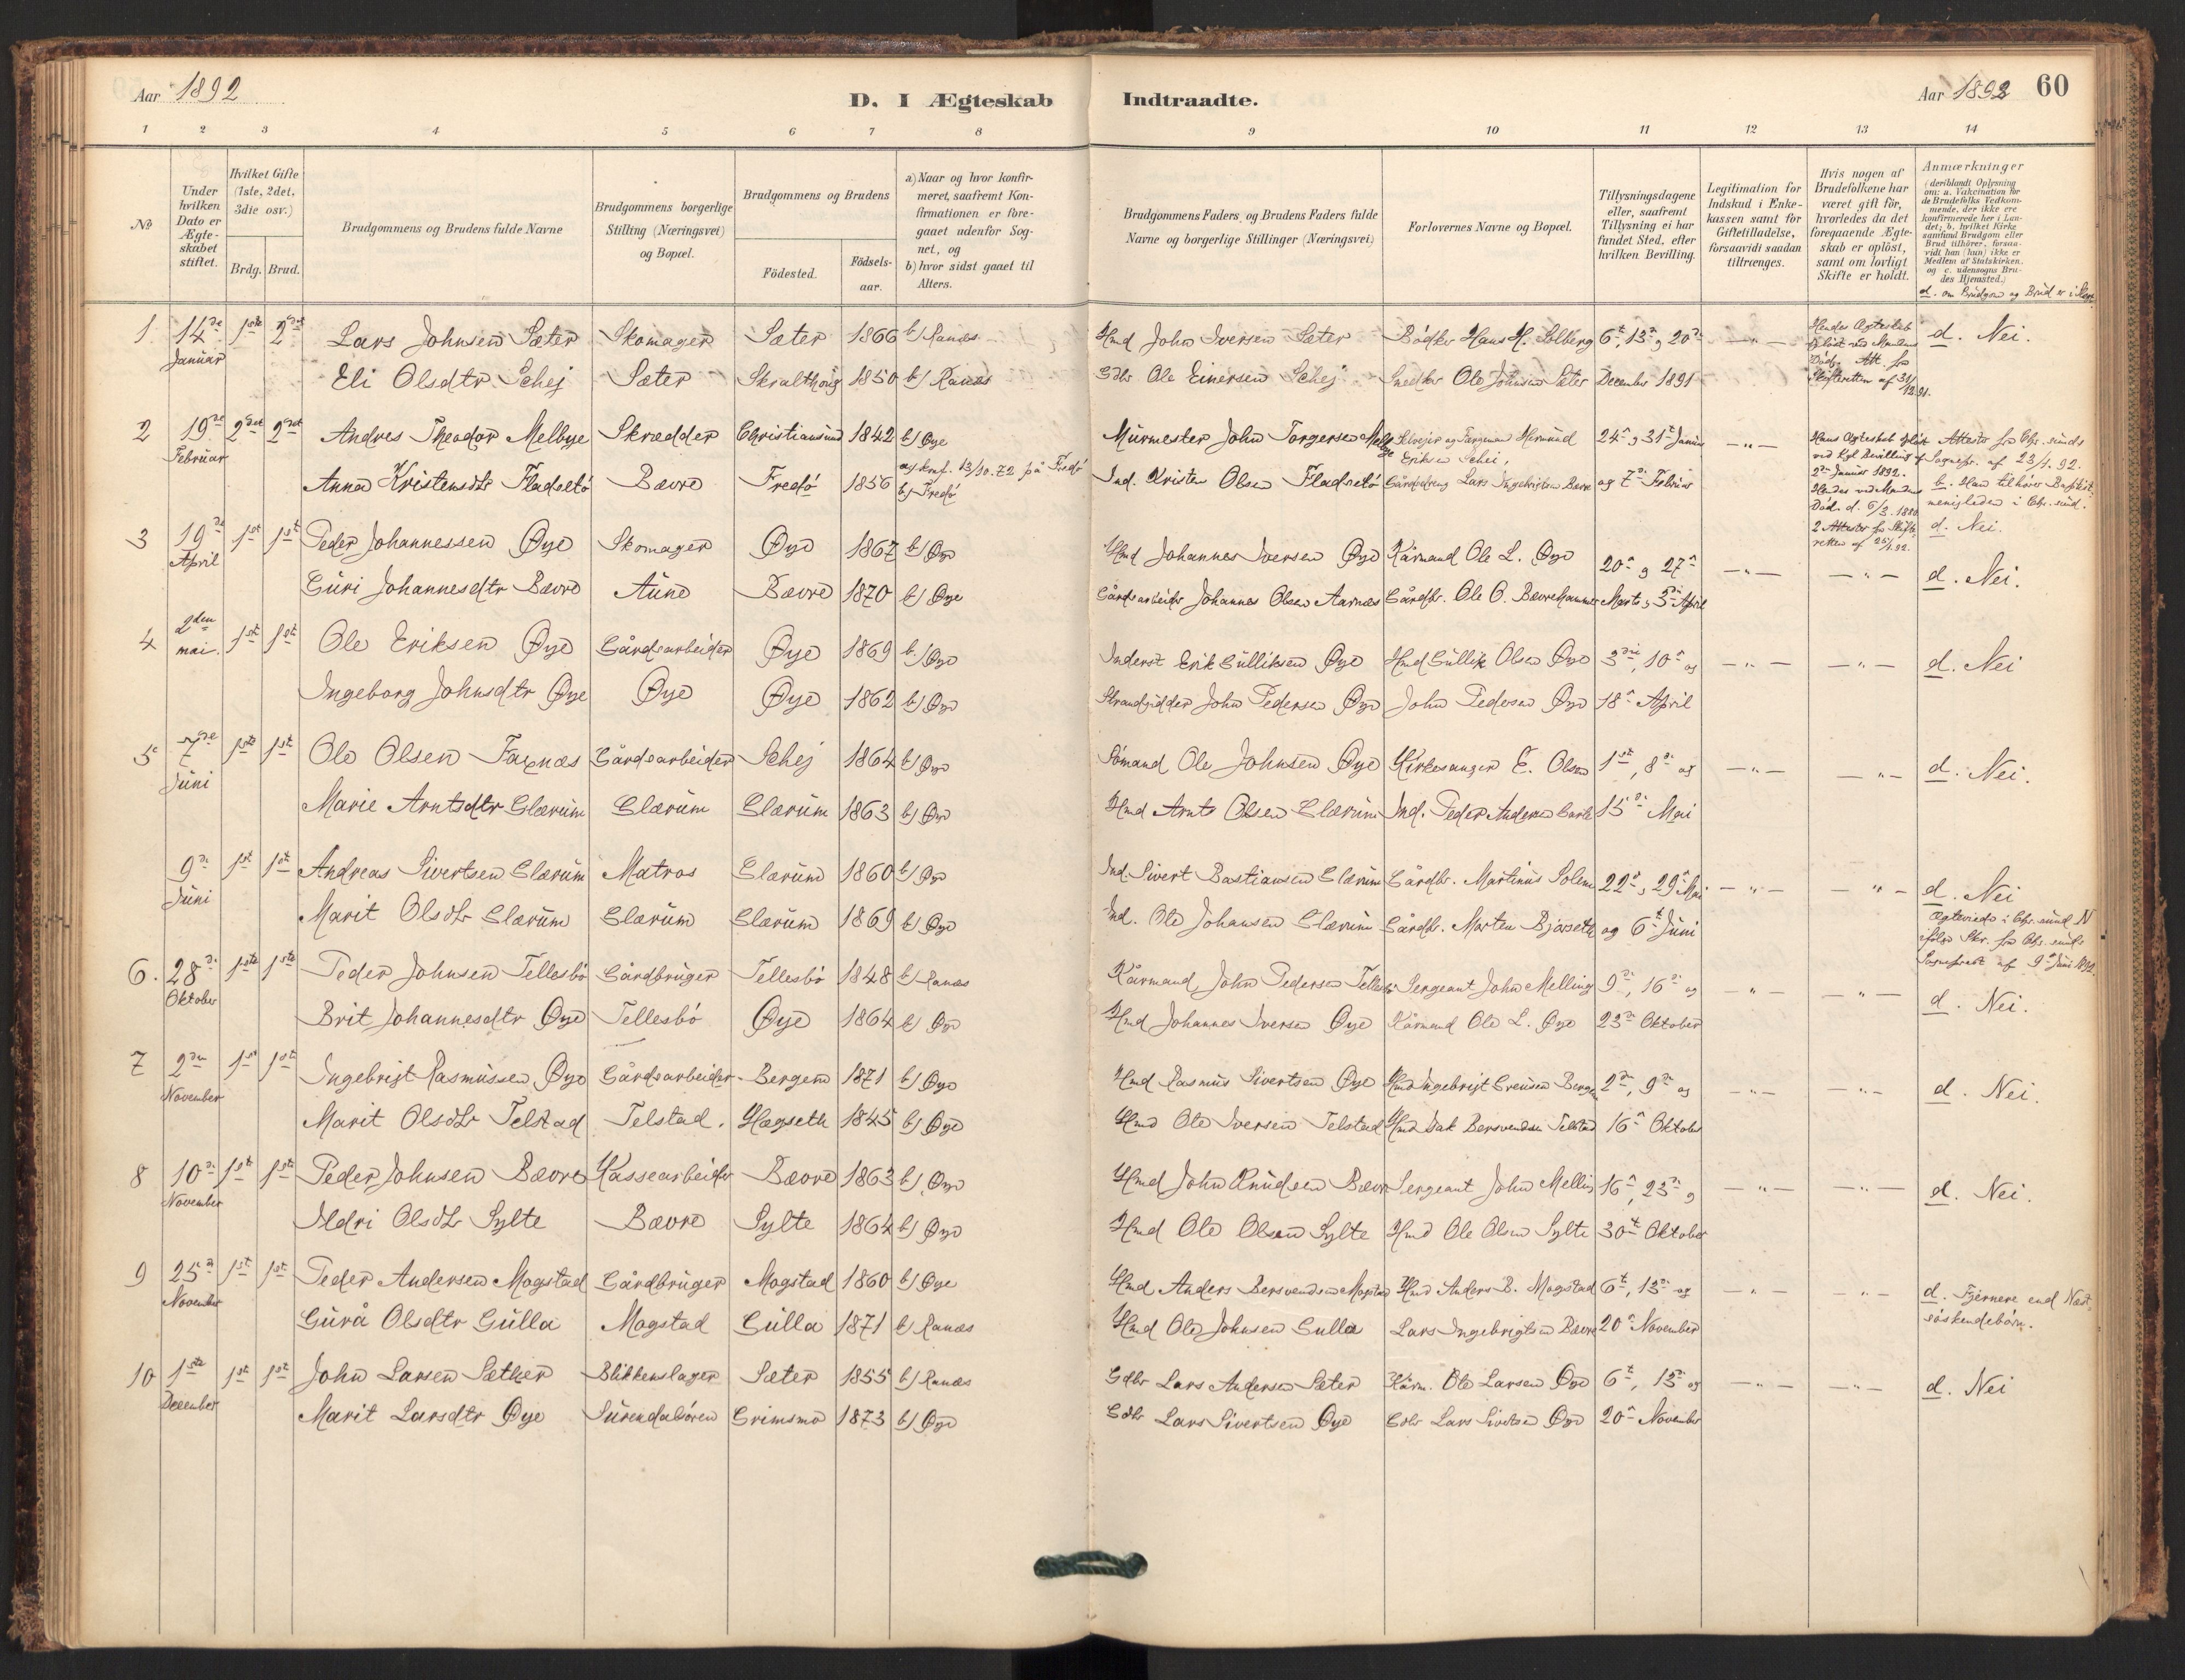 Aar 1892
D. I Ægteskab Indtraadte.
Aar 1892 60
1 2 3 4 5 6 7 8 9 10 11 12 13 14
No
Under hvilken Dato er Ægteskabet stiftet.
Hvilket Gifte (1ste, 2det, 3die osv.)
Brdg. Brud.
Brudgommens og Brudens fulde Navne
Brudgommens borgerlige Stilling (Næringsvei) og Bopæl.
Brudgommens og Brudens
Födested.
Födselsaar.
a) Naar og hvor konfirmeret, saafremt Konfirmationen er foregaaet udenfor Sognet, og
b) hvor sidst gaaet til Alters.
Brudgommens Faders og Brudens Faders fulde Navne og borgerlige Stillinger (Næringsvei)
Forlovernes Navne og Bopæl.
Tillysningsdagene eller, saafremt Tillysning ei har fundet Sted, efter hvilken Bevilling.
Legitimation for Indskud i Enkekassen samt for Giftetilladelse, forsaavidt saadan tiltrænges.
Hvis nogen af Brudefolkene har været gift för, hvorledes da det foregaaende Ægteskab er oplöst, samt om lovligt Skifte er holdt.
Anmærkninger
(deriblandt Oplysning om: a. Vakcination for de Brudefolks Vedkommende, der ikke ere konfirmerede her i Landet; b. hvilket Kirkesamfund Brudgom eller Brud tilhörer, forsaavidt han (hun) ikke er Medlem af Statskirken, og c. udensogns Brudes Hjemsted.)
d. om Brudgom og Brud er i Slægt
1 14de Januar 1ste 2det Lars Johnsen Sæter Skomager Sæter 1866 b) Ranæs Hmd John Iversen Sæter Bödker Hans H. Solberg 6t, 13de og 20de — " — Hendes Ægteskab oplöst ved Mandens Död. Att. fra Skifteretten af 31/12 91. d. Nei.
Eli Olsdtr Schej Sæter Skralthoug 1850 b) Ranæs Gdbr Ole Einersen Schej Snedker Ole Johnsen Sæter December 1891
2 19de Februar 2det 2det Andres Theodor Melbye Skrædder Christiansund 1842 b) Øye Murmester John Torgersen Melbye Selvejer og Færgemand Eriksen Schei, 24de og 31te Januar — " — Hans Ægteskab oplöst ved Kgl Bevilling af 2den Januar 1892. Attester fra Chr.sunds Sognepr. af 23/1. 92.
Anna Kristensdtr Fladsetö Bævre Fredö 1856 a) konf. 13/10. 72 på Fredö b) Fredö Ind. Kristen Olsen Fladsetö Gårddreng Lars Ingebrigtsen Bævre og 7de Februar Hendes ved Mandens Död. d. 6/3. 1880 2 Attester fra Skifteretten af 25/1 92. b. Han tilhörer Baptistmenigheden i Chr.sund. d. Nei.
3 19de April 1ste 1ste Peder Johannessen Øye Skomager Øye 1867 b) Øye Hmd Johannes Iversen Øye Kårmand Ole L. Øye 20de og 27de — " — — " — d. Nei.
Guri Johannesdtr Bævre Aune Bævre 1870 b) Øye Gårdsarbeider Johannes Olsen Aarnæs Gårdbr. Ole O. Bævrehammer Marts, 3die April
4 2den mai. 1ste 1ste Ole Eriksen Øye Gårdsarbeider Øye 1869 b.) Øye Inderst Erik Gulliksen Øye Hmd Gullik Olsen Øye 3die, 10de og — " — — " — d. Nei
Ingeborg Johnsdtr Øye Øye Øye 1862 b) Øye Strandsidder John Pedersen Øye John Pedersen Øye 18de April
5 7de Juni 1ste 1ste Ole Olsen Faxnæs Gårdsarbeider Schej 1864 b) Øye Sömand Ole Johnsen Øye Kirkesanger E. Olsen 1ste, 8de og — " — — " — d. Nei.
Marie Arntsdtr Glærum Glærum Glærum 1863 b) Øye Hmd Arnt Olsen Glærum Ind. Peder Andersen 15de Mai
9de Juni 1ste 1ste Andreas Sivertsen Glærum Matros Glærum 1860 b) Øye Ind. Sivert Bastiansen Glærum Gårdbr. Martinus Solem 22de, 29de Mai — " — — " — d. Nei
Marit Olsdtr Glærum Glærum Glærum 1869 b) Øye Ind. Ole Johansen Glærum Gårdbr. Morten Bjørseth og 6te Juni Ægteviede i Chr.sund N ifölge Skr. fra Chr.sunds Sogneprest af 9de Juni 1892.
6. 28de Oktober 1ste 1ste Peder Johnsen Tellesbö Gårdbruger Tellesbö 1848 b) Ranæs Kårmand John Pedersen Tellesbö Sergeant John Melling 9de, 16de og — " — — " — d. Nei.
Brit Johannesdtr Øye Tellesbö Øye 1864 b) Øye Hmd Johannes Iversen Øye Kårmand Ole L. Øye 23de Oktober
7 2den November 1ste 1ste Ingebrigt Rasmussen Øye Gårdsarbeider Bergem 1871 b) Øye Hmd Rasmus Sivertsen Øye Hmd Ingebrigt Evensen Bergem 2den, 9de og — " — — " — d. Nei.
Marit Olsdtr Telstad Telstad. Hægseth 1845 b) Øye Hmd Ole Iversen Telstad Hmd Isak Bersvendsen Telstad 16de Oktober
8 10de November 1ste 1ste Peder Johnsen Bævre Kassearbeider Bævre 1863 b) Øye Hmd John Knudsen Bævre Sergeant John Melling 16de, 23de og — " — — " — d. Nei.
Ildri Olsdtr Sylte Bævre Sylte 1864 b) Øye Hmd Ole Olsen Sylte Hmd Ole Olsen Sylte 30te Oktober
9 25de November 1ste 1ste Peder Andersen Mogstad Gårdbruger Mogstad 1860 b) Øye Hmd Anders Bersvendsen Mogstad Hmd Anders B. Mogstad 6te, 13de og — " — — " — d. Fjernere end Næstsöskendebörn.
Gurå Olsdtr Gulla Mogstad Gulla 1871 b) Ranæs Hmd Ole Johnsen Gulla Lars Ingebrigtsen Bævre 20de November
10 1ste December 1ste 1ste John Larsen Sæther Blikkenslager Sæter 1855 b) Ranæs Gdbr Lars Andersen Sæter Kårm. Ole Larsen Øye 6te, 13de og — " — — " — d. Nei
Marit Larsdtr Øye Surendalsören Grimsmo 1873 b) Øye Gdbr Lars Sivertsen Øye Gdbr Lars Sivertsen Øye 20de November